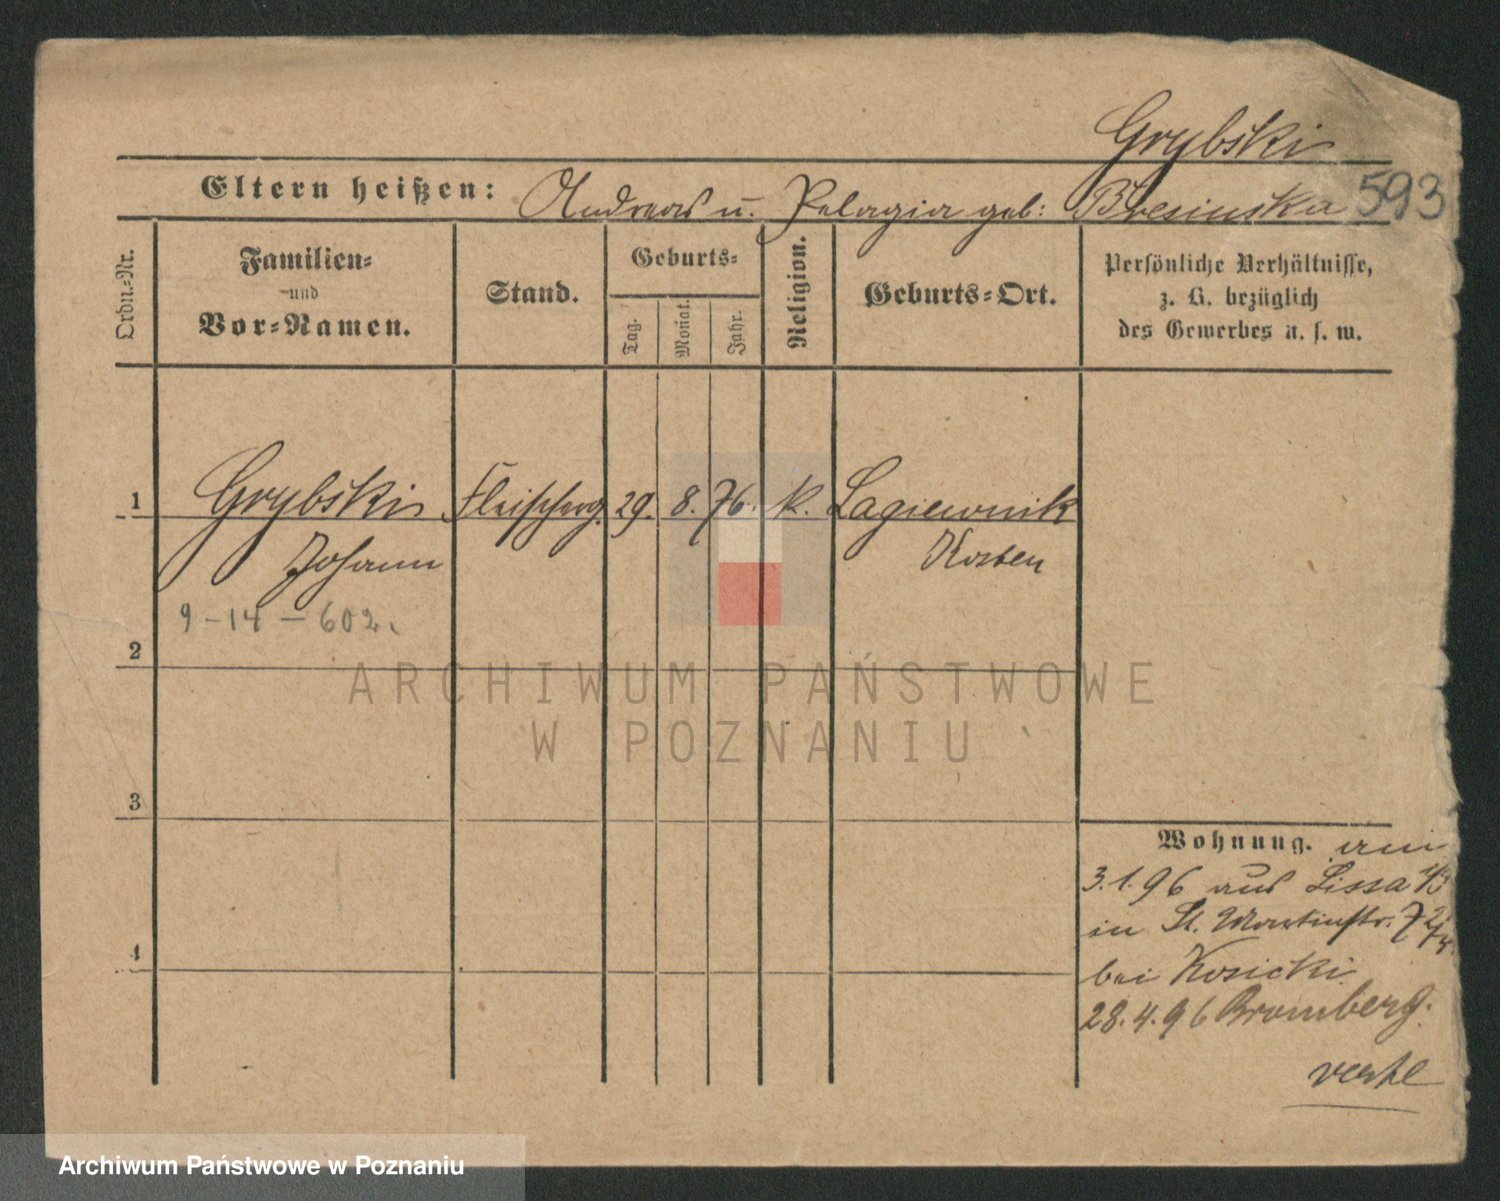 Grybski
Eltern heißen: Andreas u. Pelagia geb: Bresinska 593
Ordn.-Nr.
Familien-
und
Vor-Namen.
Stand.
Geburts-
Tag.
Monat.
Jahr.
Religion.
Geburts-Ort.
Persönliche Verhältnisse,
z. B. bezüglich
des Gewerbes u. s. w.
1 Grybski Fleischerg. 29. 8. 76. k. Lagiewnik
Johann Kosten
9-14-602.
2
3
4
Wohnung. am
3.1.96 aus Lissa
in St. Martinstr. 72
bei Kosicki.
28.4.96 Bromberg.
ARCHIWUM PAŃSTWOWE
W POZNANIU
Archiwum Państwowe w Poznaniu